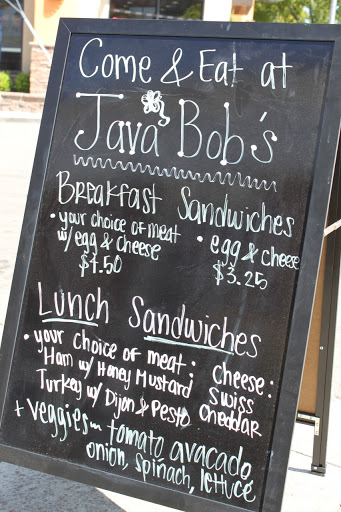 Come & Eat at
Java Bob's
Breakfast Sandwiches
• your choice of meat
w/ egg & cheese
$4.50
• egg & cheese
$3.25
Lunch Sandwiches
• your choice of meat:
Ham w/ Honey Mustard
Turkey w/ Dijon & Pesto
cheese:
Swiss
Cheddar
+ veggies~ tomato avacado
onion, spinach, lettuce